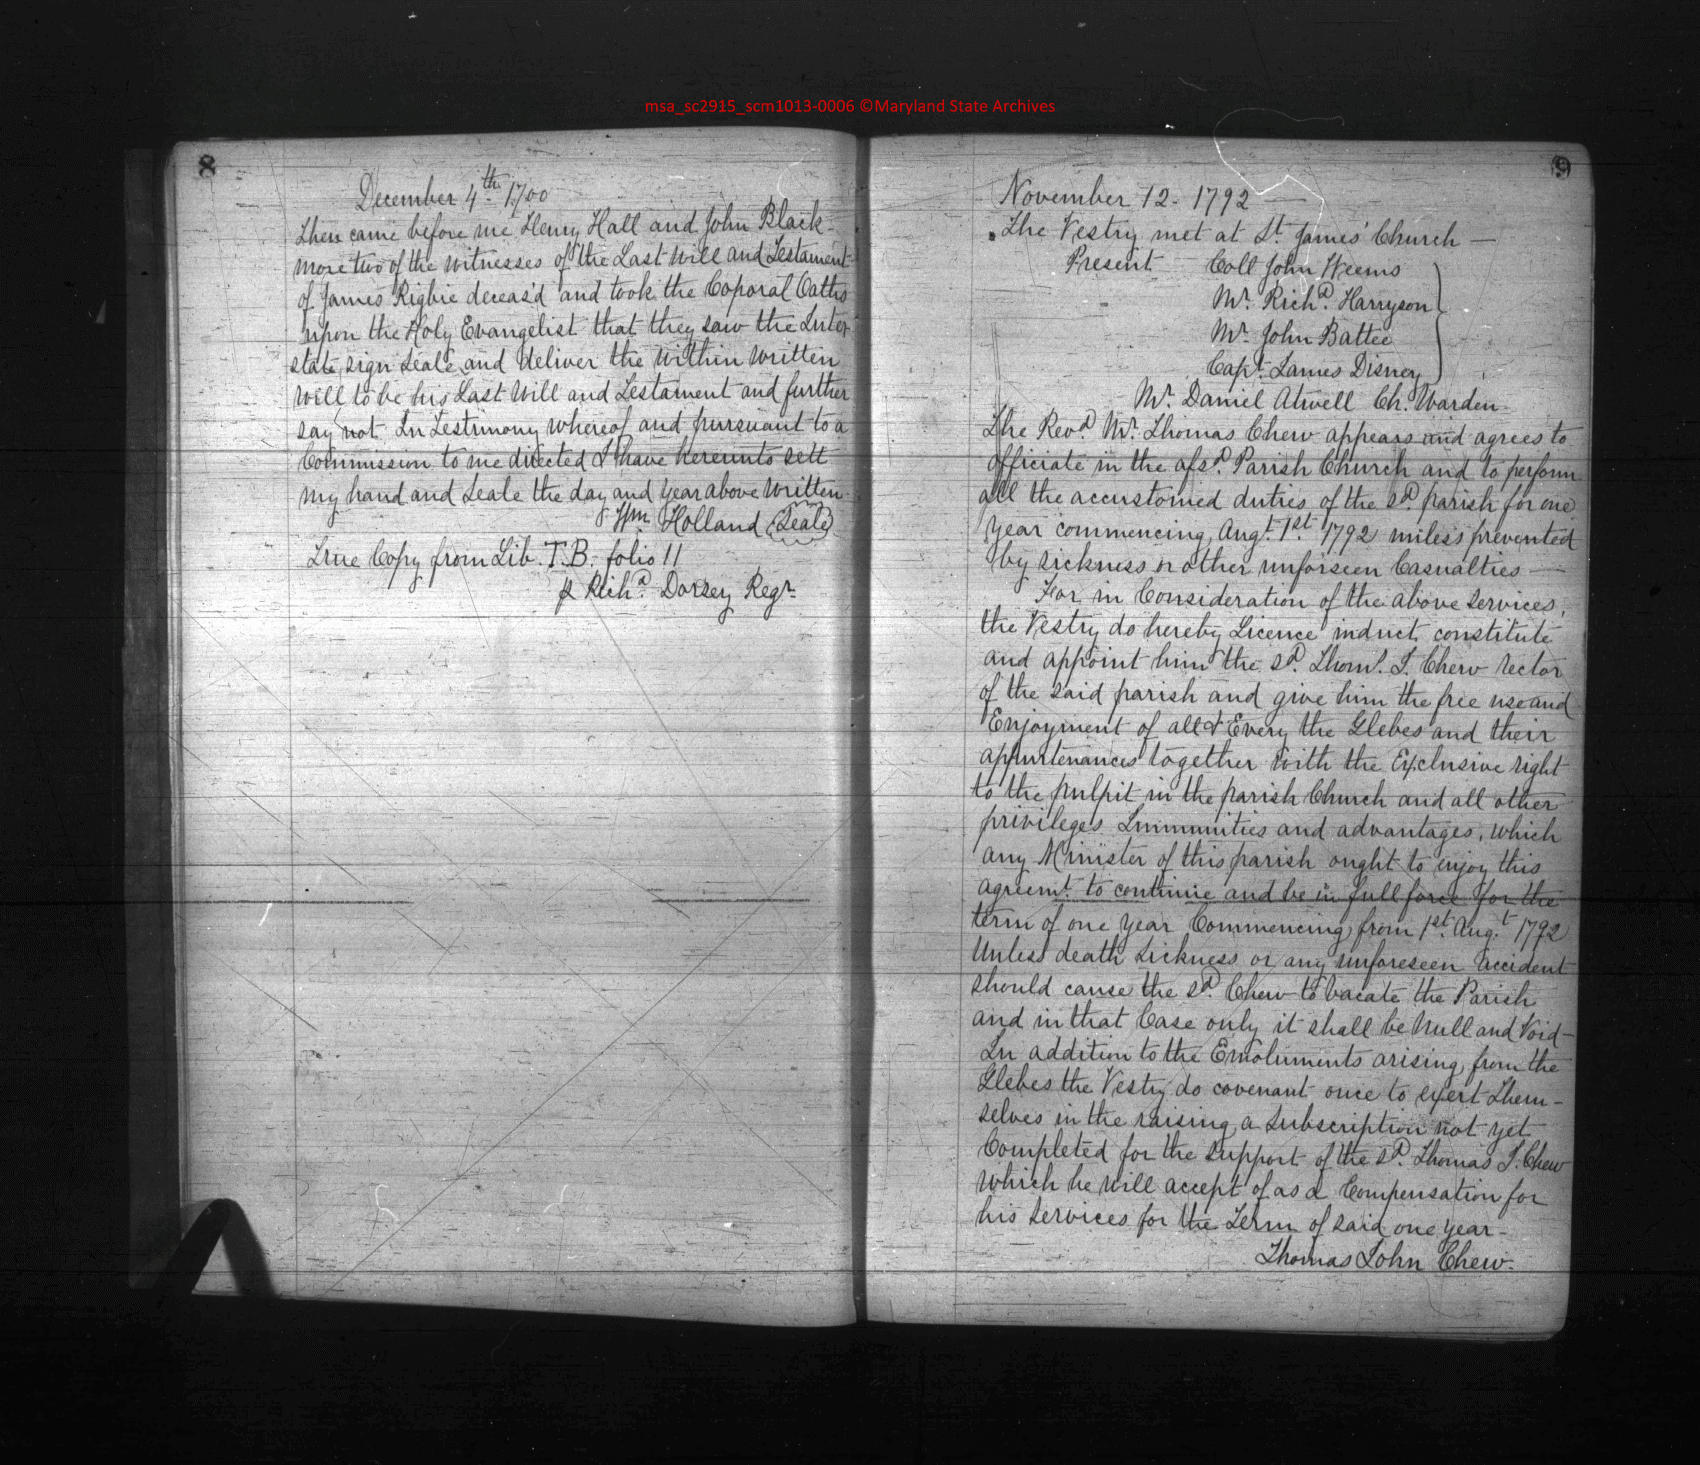 msa_sc2915_scm1013-0006 ©Maryland State Archives
8
December 4th 1700
Then came before me Henry Hall and John Black-
more two of the witnesses of the Last Will and Testament
of James Rigbie deceas'd and took the Coporal Oaths
upon the Holy Evangelist that they saw the Inter
state sign Seale and deliver the within written
Will to be his Last Will and Testament and further
say not In Testimony whereof and pursuant to a
Commission to me directed I have hereunto sett
my hand and Seale the day and year above written.
Wm Holland (Seale)
True Copy from Lib. T.B. folio 11
p Richd. Dorsey Regr.
9
November 12. 1792 —
The Vestry met at St. James' Church —
Present Coll John Weems
Mr. Richd. Harryson
Mr. John Battee
Capt. James Disney
Mr. Daniel Atwell Ch. Warden
The Revd. Mr. Thomas Chew appears and agrees to
officiate in the afsd. Parish Church and to perform
all the accustomed duties of the sd. parish for one
year commencing Augt. 1st. 1792 unless prevented
by sickness or other unforseen Casualties —
For in Consideration of the above services,
the Vestry do hereby Licence induct constitute
and appoint him the sd. Thoms. J. Chew rector
of the said parish and give him the free use and
Enjoyment of all & Every the Glebes and their
appurtenances together with the Exclusive right
to the pulpit in the parish Church and all other
privileges Immunities and advantages, which
any Minister of this parish ought to enjoy this
agreemt. to continue and be in full force for the
term of one year Commencing from 1st. Augt. 1792
Unless death Sickness or any unforeseen accident
should cause the sd. Chew to vacate the Parish
and in that Case only it shall be Null and Void —
In addition to the Emoluments arising from the
Glebes the Vestry do covenant once to exert Them-
selves in the raising a Subscription not yet
Completed for the Support of the sd. Thomas J. Chew
Which he will accept of as a Compensation for
his Services for the Term of said one year -
Thomas John Chew.